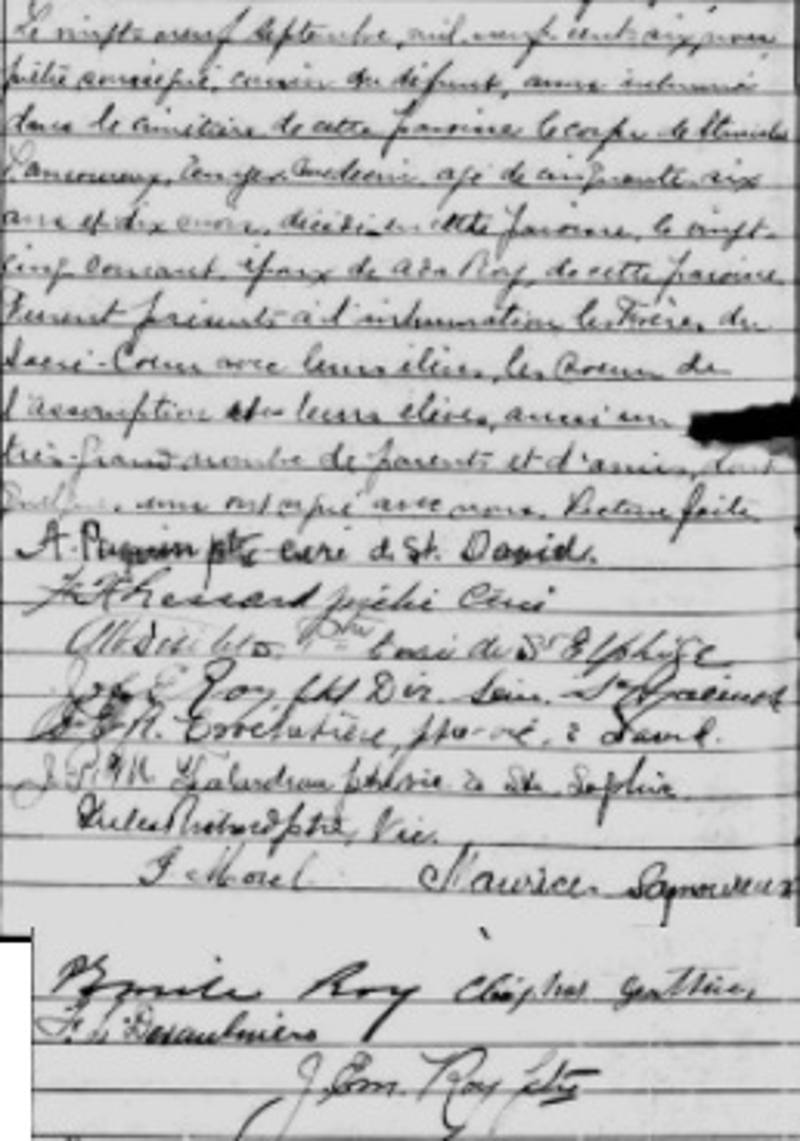 Le vingt-neuf Septembre, mil neuf cent six, nous
prêtre soussigné, cousin du défunt, avons inhumé
dans le cimetière de cette paroisse le corps de Stanislas
Lamoureux, médecin, agé de cinquante-six
ans et dix mois, décédé en cette paroisse, le vingt-
cinq courant, époux de Ada Roy, de cette paroisse.
Furent présents à l'inhumation les Frères du
Sacré-Coeur avec leurs élèves, les Soeurs de
l'assomption leurs élèves, aussi un
très-grand nombre de parents et d'amis, dont
quelques-uns ont signé avec nous. Lecture faite
A. Paquin ptre curé d. St. David.
Lessard prêtre Curé
ptre Curé de St Elphège
Roy Dir. Sem.
ptre-vic. à David.
J. ptre vic. à Ste. Sophie
Jules ptre, Vic.
J. Morel Maurice Lamoureux
Emile Roy Cléophas Gauthier,
F. L. Desaulniers
J. Em. Roy Ptre